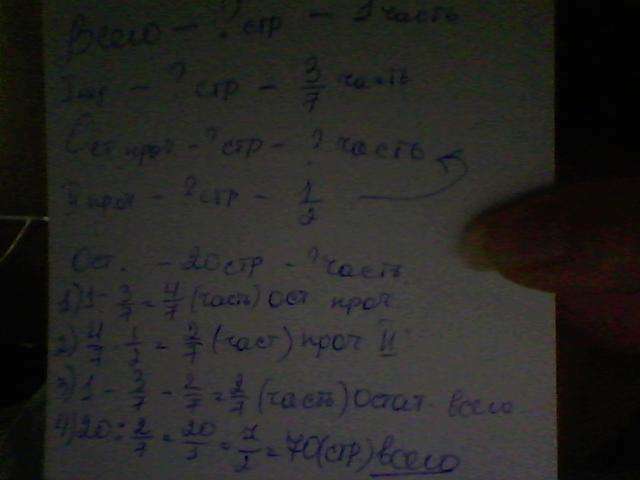 Всего - ? стр - 1 часть
- ? стр - 3/7 часть
Ост проч - ? стр - ? часть
II проч - ? стр - 1/2
Ост. - 20 стр - ? часть
1) 1 - 3/7 = 4/7 (часть) ост проч
2) 4/7 · 1/2 = 2/7 (част) проч II
3) 1 - 3/7 - 2/7 = 2/7 (часть) остат всего
4) 20 : 2/7 = 20/1 = 7/2 = 70 (стр) всего